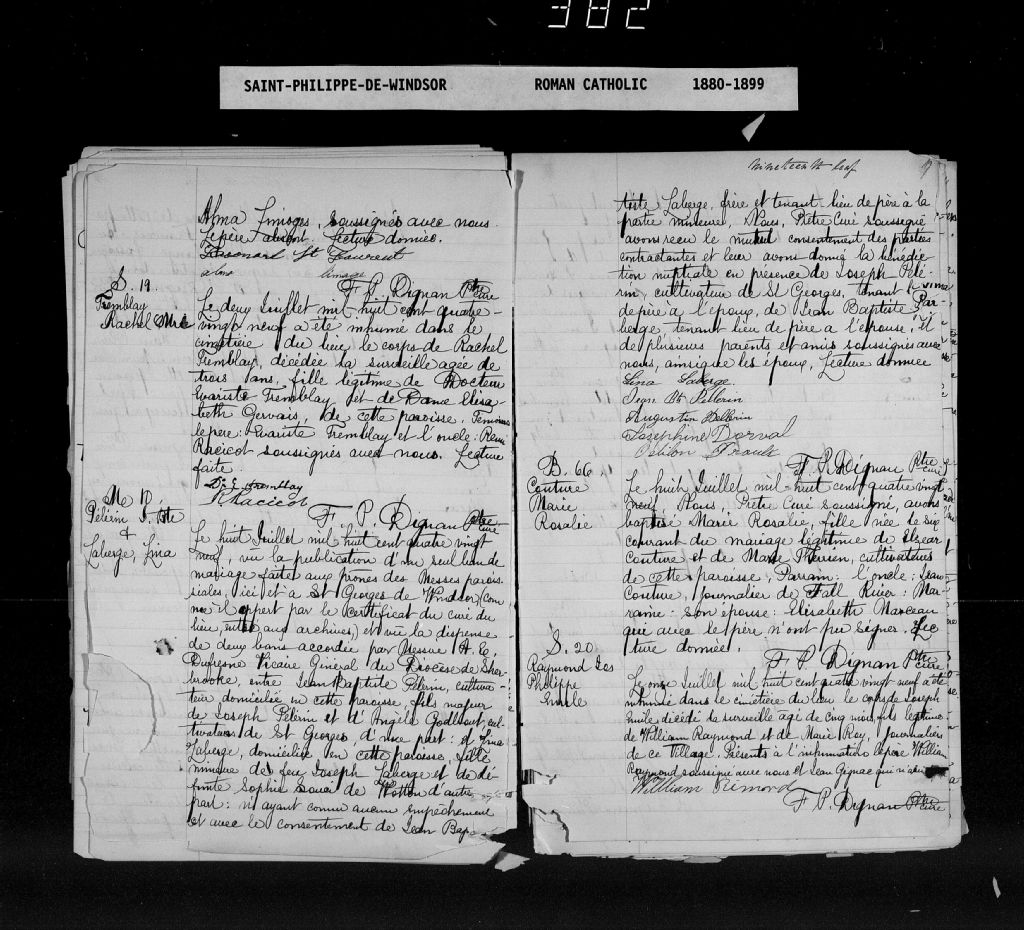 382
SAINT-PHILIPPE-DE-WINDSOR ROMAN CATHOLIC 1880-1899
Alma Limoges, soussignés avec nous.
Le père absent. Lecture donnée.
St Laurent
alma limoges
F. P. Dignan Ptre curé
S. 19.
Tremblay
Rachel
Le deux Juillet mil huit cent quatre-
vingt neuf a été inhumé dans le
cimetière du lieu le corps de Rachel
Tremblay, décédée la surveille agée de
trois ans, fille légitime de Docteur
Evariste Tremblay et de Dame Elisa-
beth Gervais, de cette paroisse. Témoins
le père: Evariste Tremblay et l'oncle: René
Racicot soussignés avec nous. Lecture
faite.
Dr E. Tremblay
R Racicot
F. P. Dignan Ptre curé
M. 10.
Pélerin J. Bte
+
Laberge, Lina
Le huit Juillet mil huit cent quatre vingt
neuf, vu la publication d'un seul ban de
mariage faite aux prones des Messes parois-
siales, ici et a St Georges de Windsor (com-
me il appert par le certificat du curé du
lieu, entre aux archives,) et vu la dispense
de deux bans accordée par Messire A. E.
Dufresne Vicaire Général du Diocèse de Sher-
brooke, entre Jean Baptiste Pélerin, cultiva-
teur domicilié en cette paroisse, fils majeur
de Joseph Pélerin et d'Angèle Godbout, cul-
tivateurs de St Georges d'une part: et Lina
Laberge, domiciliée en cette paroisse, fille
mineure de feu Joseph Laberge et de dé-
funte Sophie de Wotton d'autre
part: n'ayant connu aucun empêchement
et avec le consentement de Jean Bap-
Nineteenth leaf 19
tiste Laberge, frère et tenant lieu de père à la
partie mineure, Nous, Prêtre Curé soussigné
avons recu le mutuel consentement des parties
contractantes et leur avons donné la bénédic-
tion nuptiale en présence de Joseph Pélé-
rin, cultivateur de St Georges, tenant lieu
de père a l'époux, de Jean Baptiste
berge tenant lieu de père a l'épouse; et
de plusieurs parents et amis soussignés avec
nous, ainsi que les époux, Lecture donnée
Lina Laberge.
Jean Bt Pellerin
Augustin Pellerin
Josephine Dorval
F. P. Dignan Ptre curé
B. 66
Couture
Marie
Rosalie
Le huit Juillet mil-huit cent quatre vingt
neuf Nous, Prêtre Curé soussigné, avons
baptisé Marie Rosalie, fille née le six
courant du mariage légitime de Elzear
Couture et de Marie Therrien, cultivateurs
de cette paroisse, Parrain: l'oncle: Jean
Couture, journalier de Fall River: Mar-
raine: son épouse: Elisabeth Marceau
qui avec le père n'ont pu signer. Lec-
ture donnée.
F. P. Dignan Ptre curé
S. 20.
Raymond Jos
Philippe
Emile
Le onze Juillet mil huit cent quatre vingt neuf a été
inhumé dans le cimetière du lieu le corps de Joseph
Emile décédé la surveille agé de cinq mois, fils légitime
de William Raymond et de Marie Roy, journaliers
de ce village. Présents à l'inhumation le père William
Raymond soussigné avec nous et Jean Gignac qui n'a
William Rimond
F. P. Dignan Ptre curé